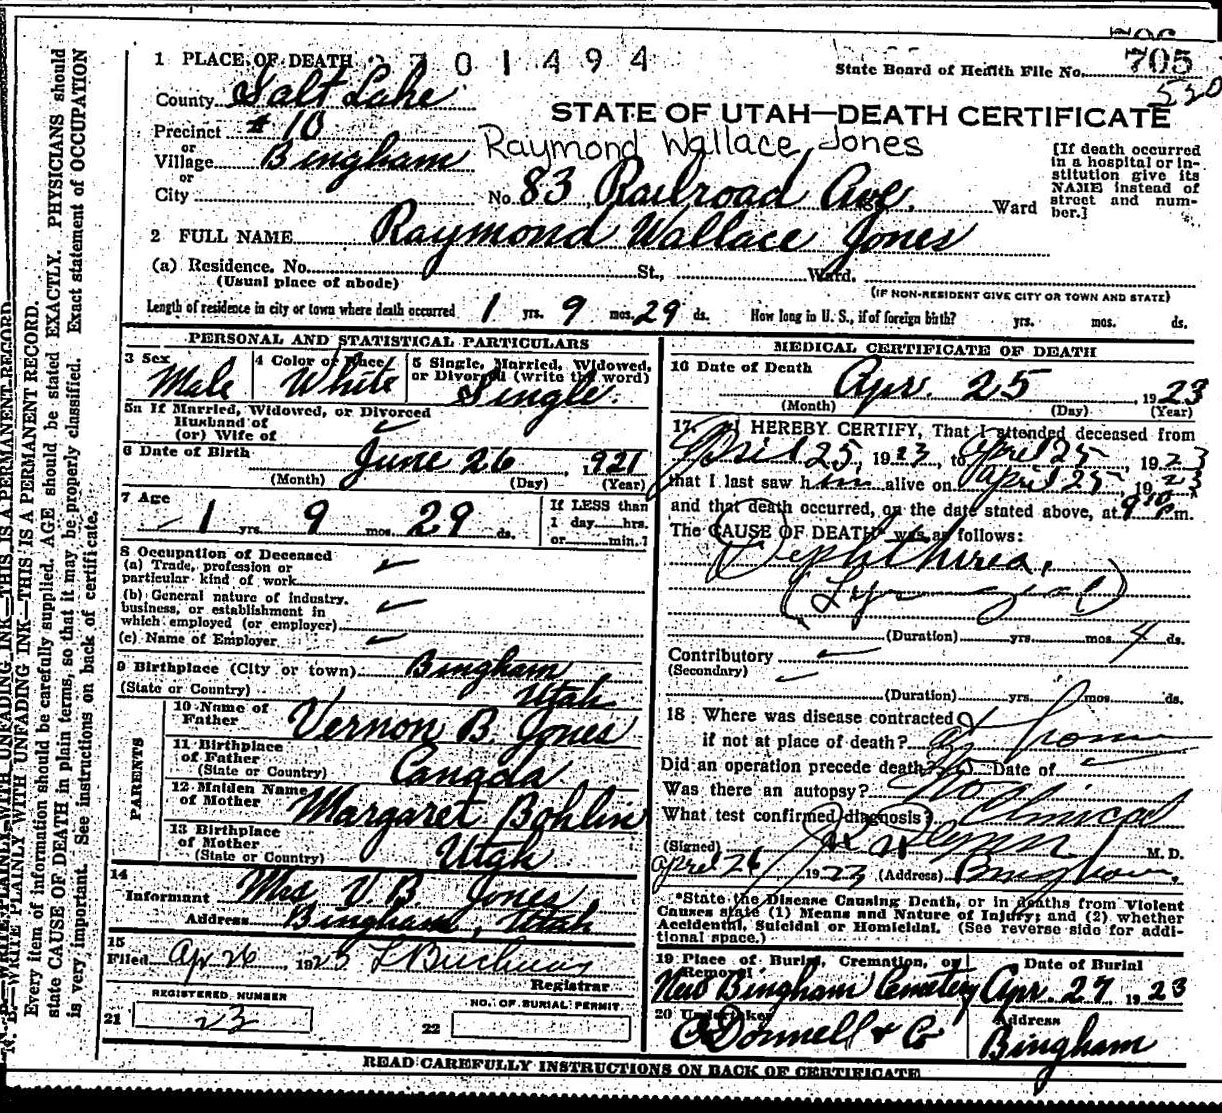 705
State Board of Health File No. 705
520
1 PLACE OF DEATH 701494
County Salt Lake
STATE OF UTAH—DEATH CERTIFICATE
Precinct # 10
or
Village Bingham
Raymond Wallace Jones
or
City
No. 83 Railroad Ave. Ward
[If death occurred
in a hospital or in-
stitution give its
NAME instead of
street and num-
ber.]
2 FULL NAME Raymond Wallace Jones
(a) Residence. No. St., Ward.
(Usual place of abode)
(IF NON-RESIDENT GIVE CITY OR TOWN AND STATE)
Length of residence in city or town where death occurred 1 yrs. 9 mos. 29 ds. How long in U. S., if of foreign birth? yrs. mos. ds.
PERSONAL AND STATISTICAL PARTICULARS
3 Sex
Male
4 Color or Race
White
5 Single, Married, Widowed,
or Divorced (write the word)
Single
5a If Married, Widowed, or Divorced
Husband of
(or) Wife of
6 Date of Birth June 26, 1921
(Month) (Day) (Year)
7 Age
1 yrs. 9 mos. 29 ds.
If LESS than
1 day hrs.
or min.?
8 Occupation of Deceased
(a) Trade, profession or
particular kind of work
(b) General nature of industry,
business, or establishment in
which employed (or employer)
(c) Name of Employer
9 Birthplace (City or town) Bingham
(State or Country) Utah
PARENTS
10 Name of
Father Vernon B. Jones
11 Birthplace
of Father
(State or Country) Canada
12 Maiden Name
of Mother Margaret Bohlin
13 Birthplace
of Mother
(State or Country) Utah
14
Informant Mrs V B Jones
Address Bingham, Utah
15
Filed Apr 26, 1923
Registrar
REGISTERED NUMBER
21 23
NO. OF BURIAL PERMIT
22
MEDICAL CERTIFICATE OF DEATH
16 Date of Death Apr. 25, 1923
(Month) (Day) (Year)
17. I HEREBY CERTIFY, That I attended deceased from
April 25, 1923, to April 25, 1923
that I last saw him alive on April 25, 1923
and that death occurred, on the date stated above, at 9 P.m.
The CAUSE OF DEATH* was as follows:
Diphtheria,
(Duration) yrs. mos. 4 ds.
Contributory
(Secondary)
(Duration) yrs. mos. ds.
18 Where was disease contracted
if not at place of death? at home
Did an operation precede death? No Date of
Was there an autopsy? No
What test confirmed diagnosis? Clinical
(Signed) M. D.
April 26 1923 (Address) Bingham.
*State the Disease Causing Death, or in deaths from Violent
Causes state (1) Means and Nature of Injury; and (2) whether
Accidental, Suicidal or Homicidal. (See reverse side for addi-
tional space.)
19 Place of Burial, Cremation, or
Removal
New Bingham Cemetery
Date of Burial
Apr. 27 1923
20 Undertaker
O'Donnell & Co
Address
Bingham
READ CAREFULLY INSTRUCTIONS ON BACK OF CERTIFICATE
N. B.—WRITE PLAINLY WITH UNFADING INK—THIS IS A PERMANENT RECORD.
Every item of information should be carefully supplied. AGE should be stated EXACTLY. PHYSICIANS should
state CAUSE OF DEATH in plain terms, so that it may be properly classified. Exact statement of OCCUPATION
is very important. See instructions on back of certificate.